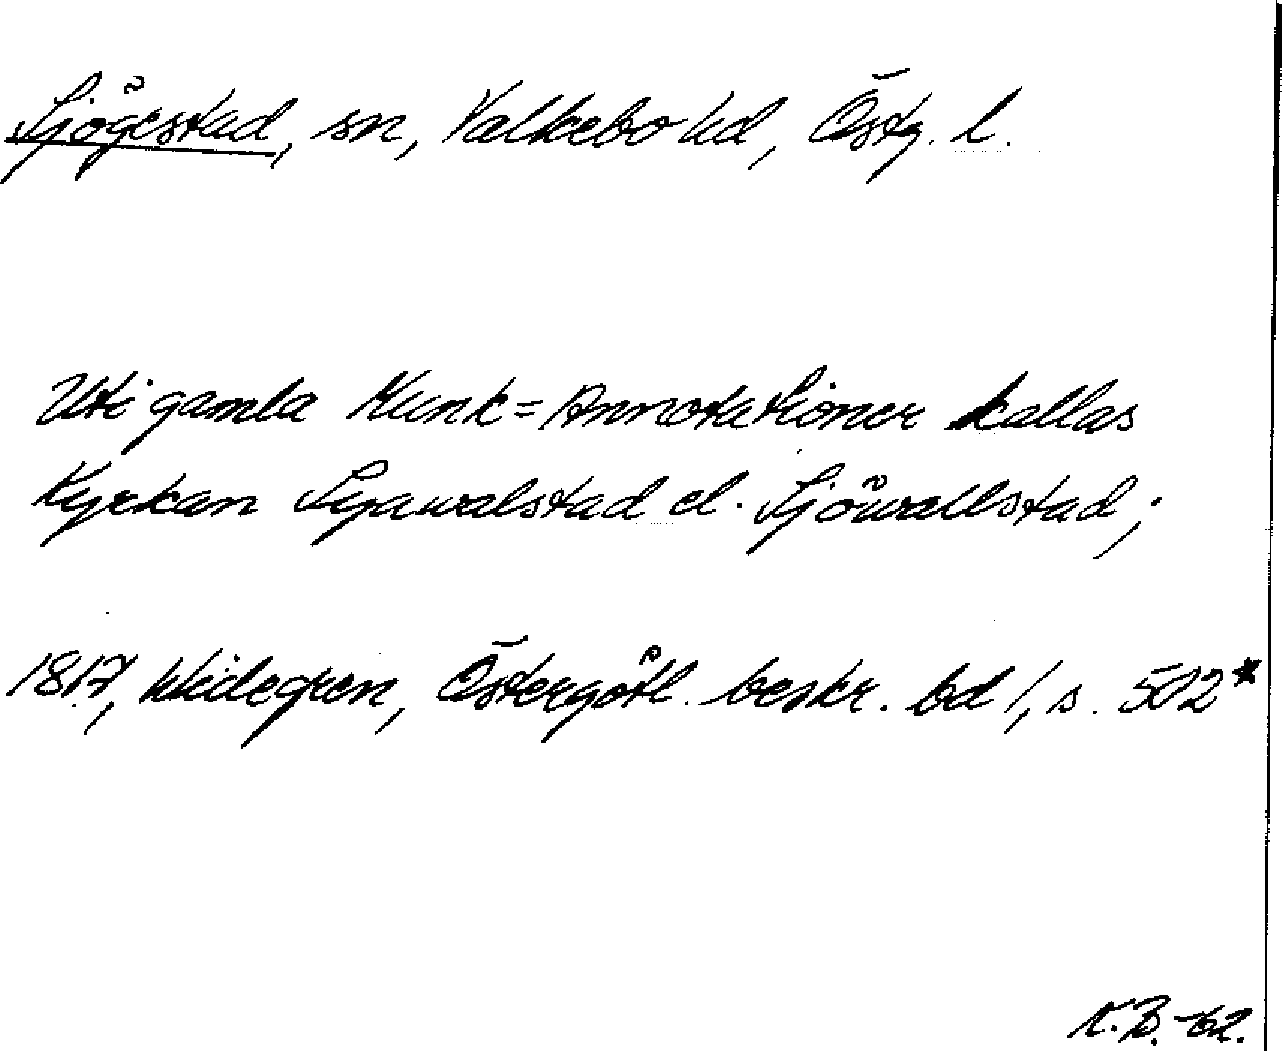 Sjögestad, sn, Valkebo hd, Östg. l.
Uti gamla Munk=Annotationer kallas
Kyrkan Syawalstad el. Sjöwallstad;
1817, Widegren, Östergötl. beskr. bd 1, s. 502*
K.B. -62.